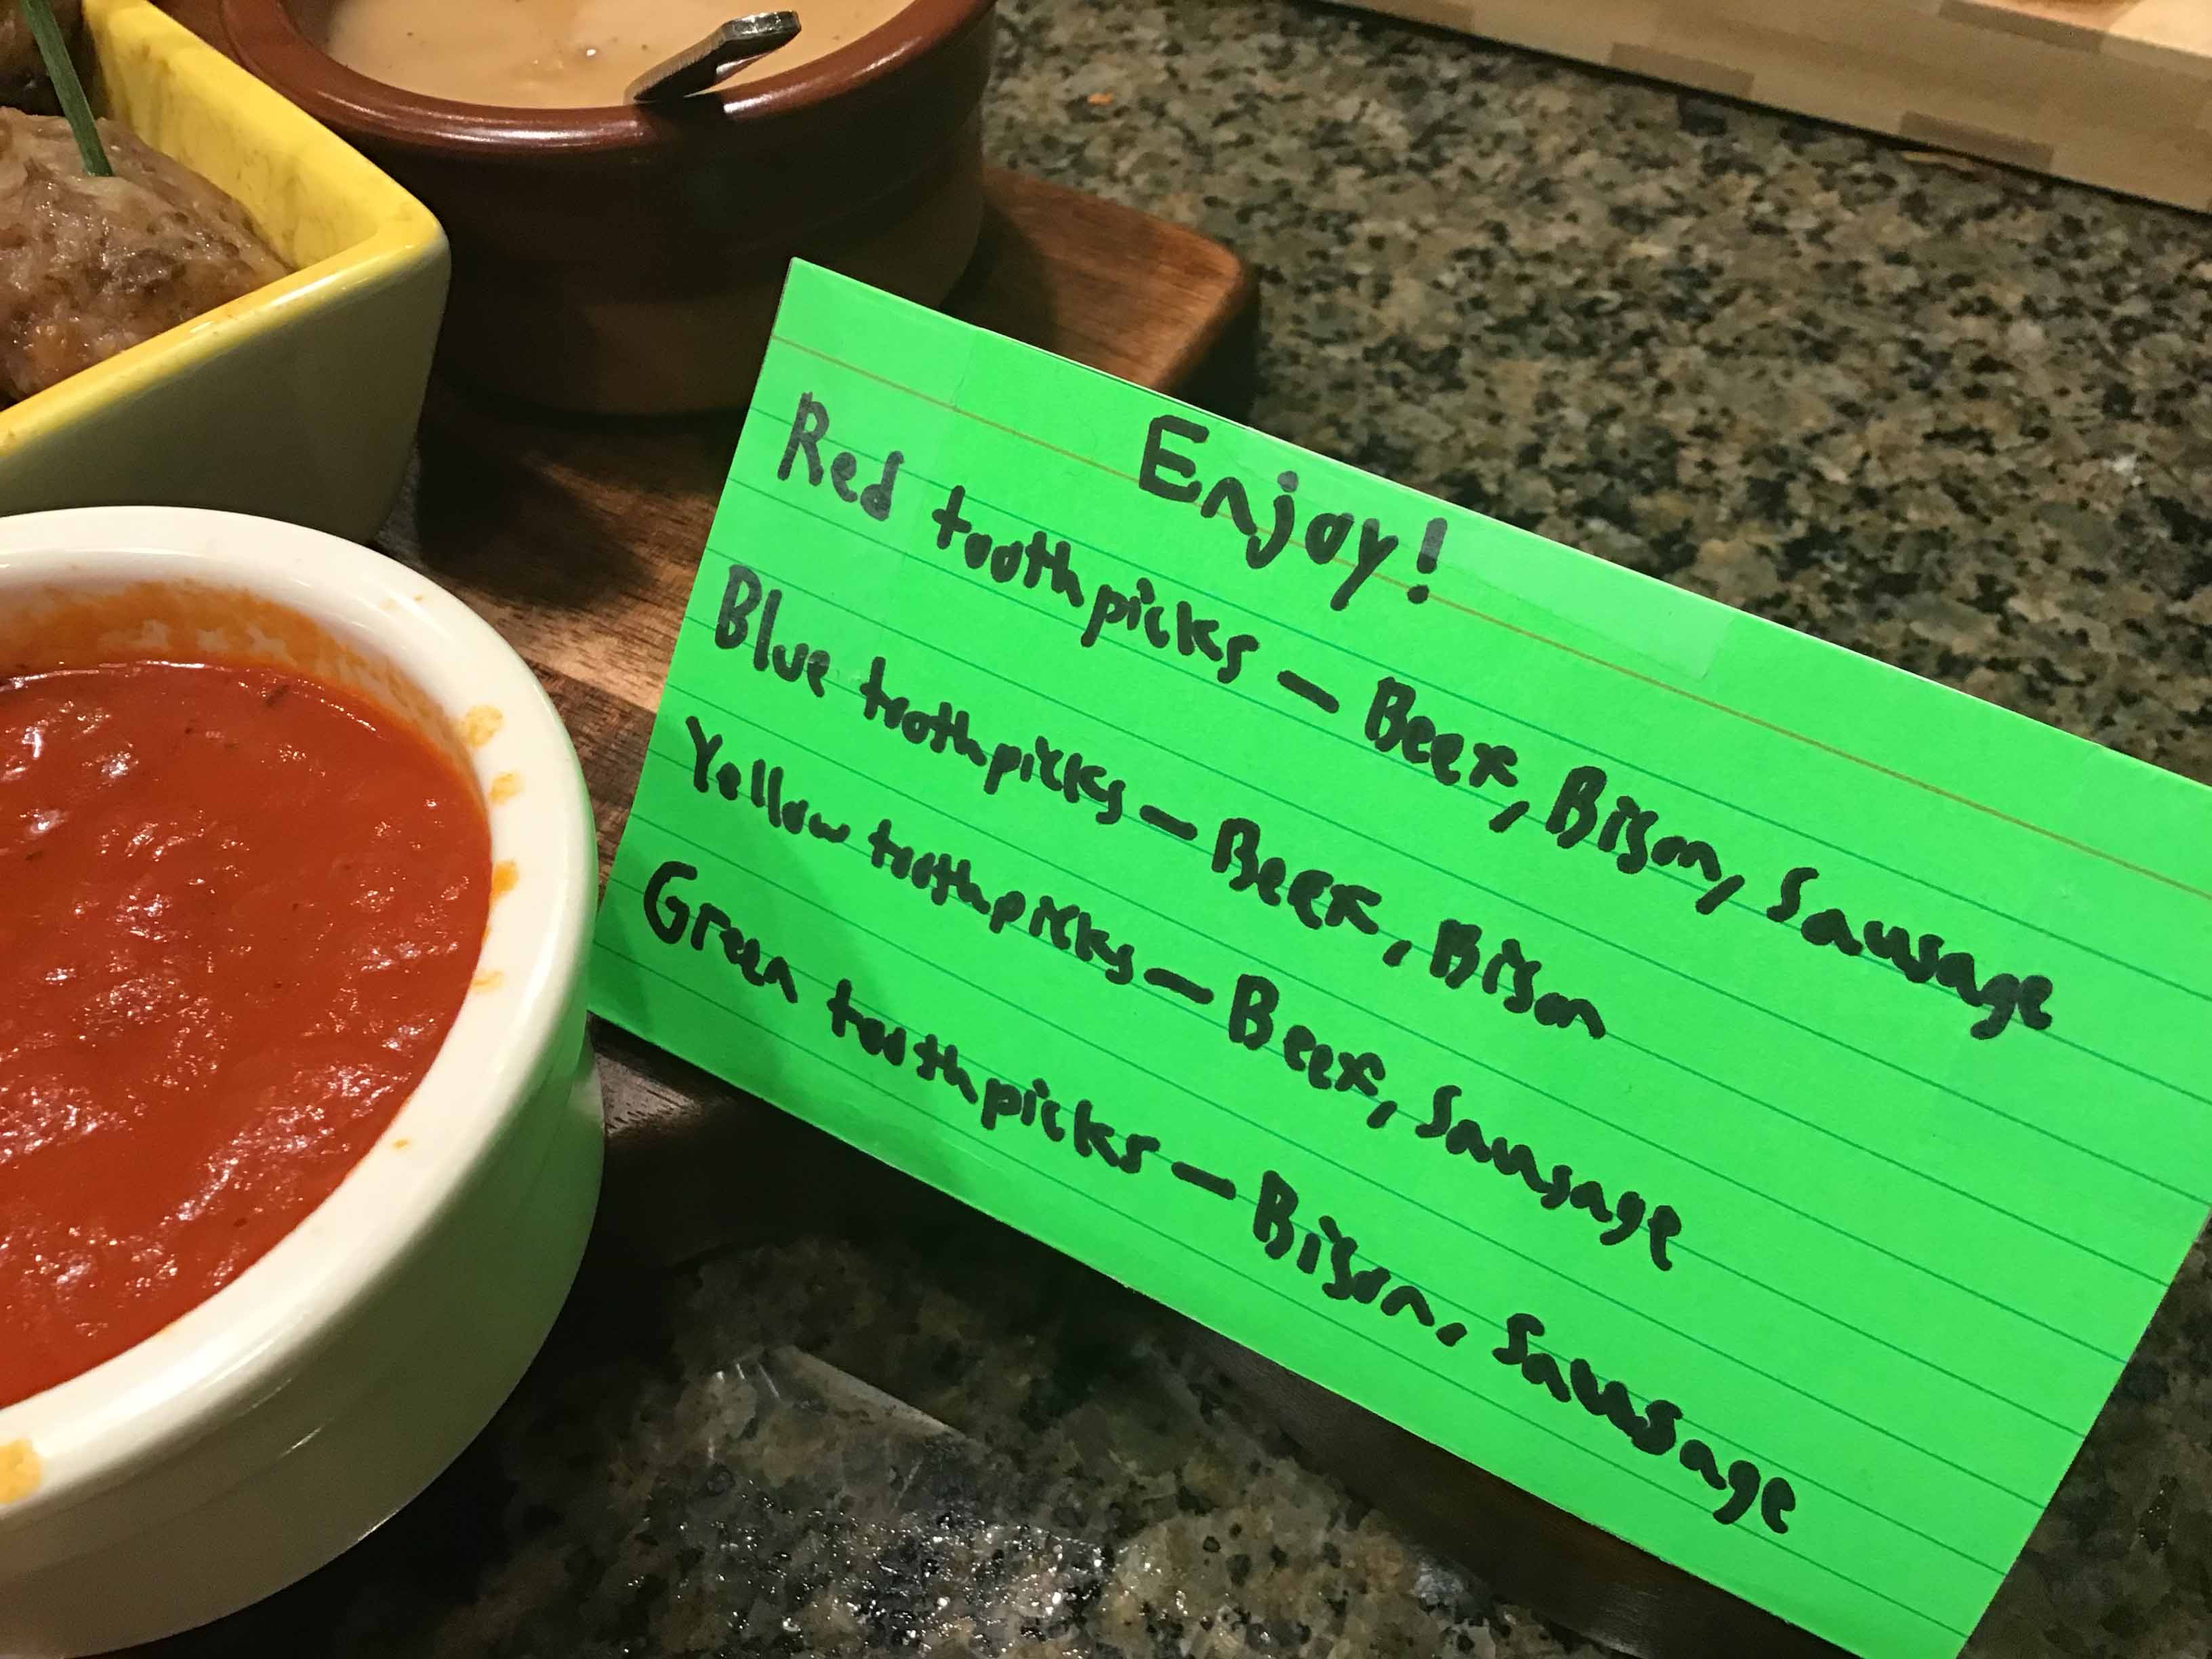 Enjoy!
Red toothpicks — Beef, Bison, Sausage
Blue toothpicks — Beef, Bison
Yellow toothpicks — Beef, Sausage
Green toothpicks — Bison, Sausage